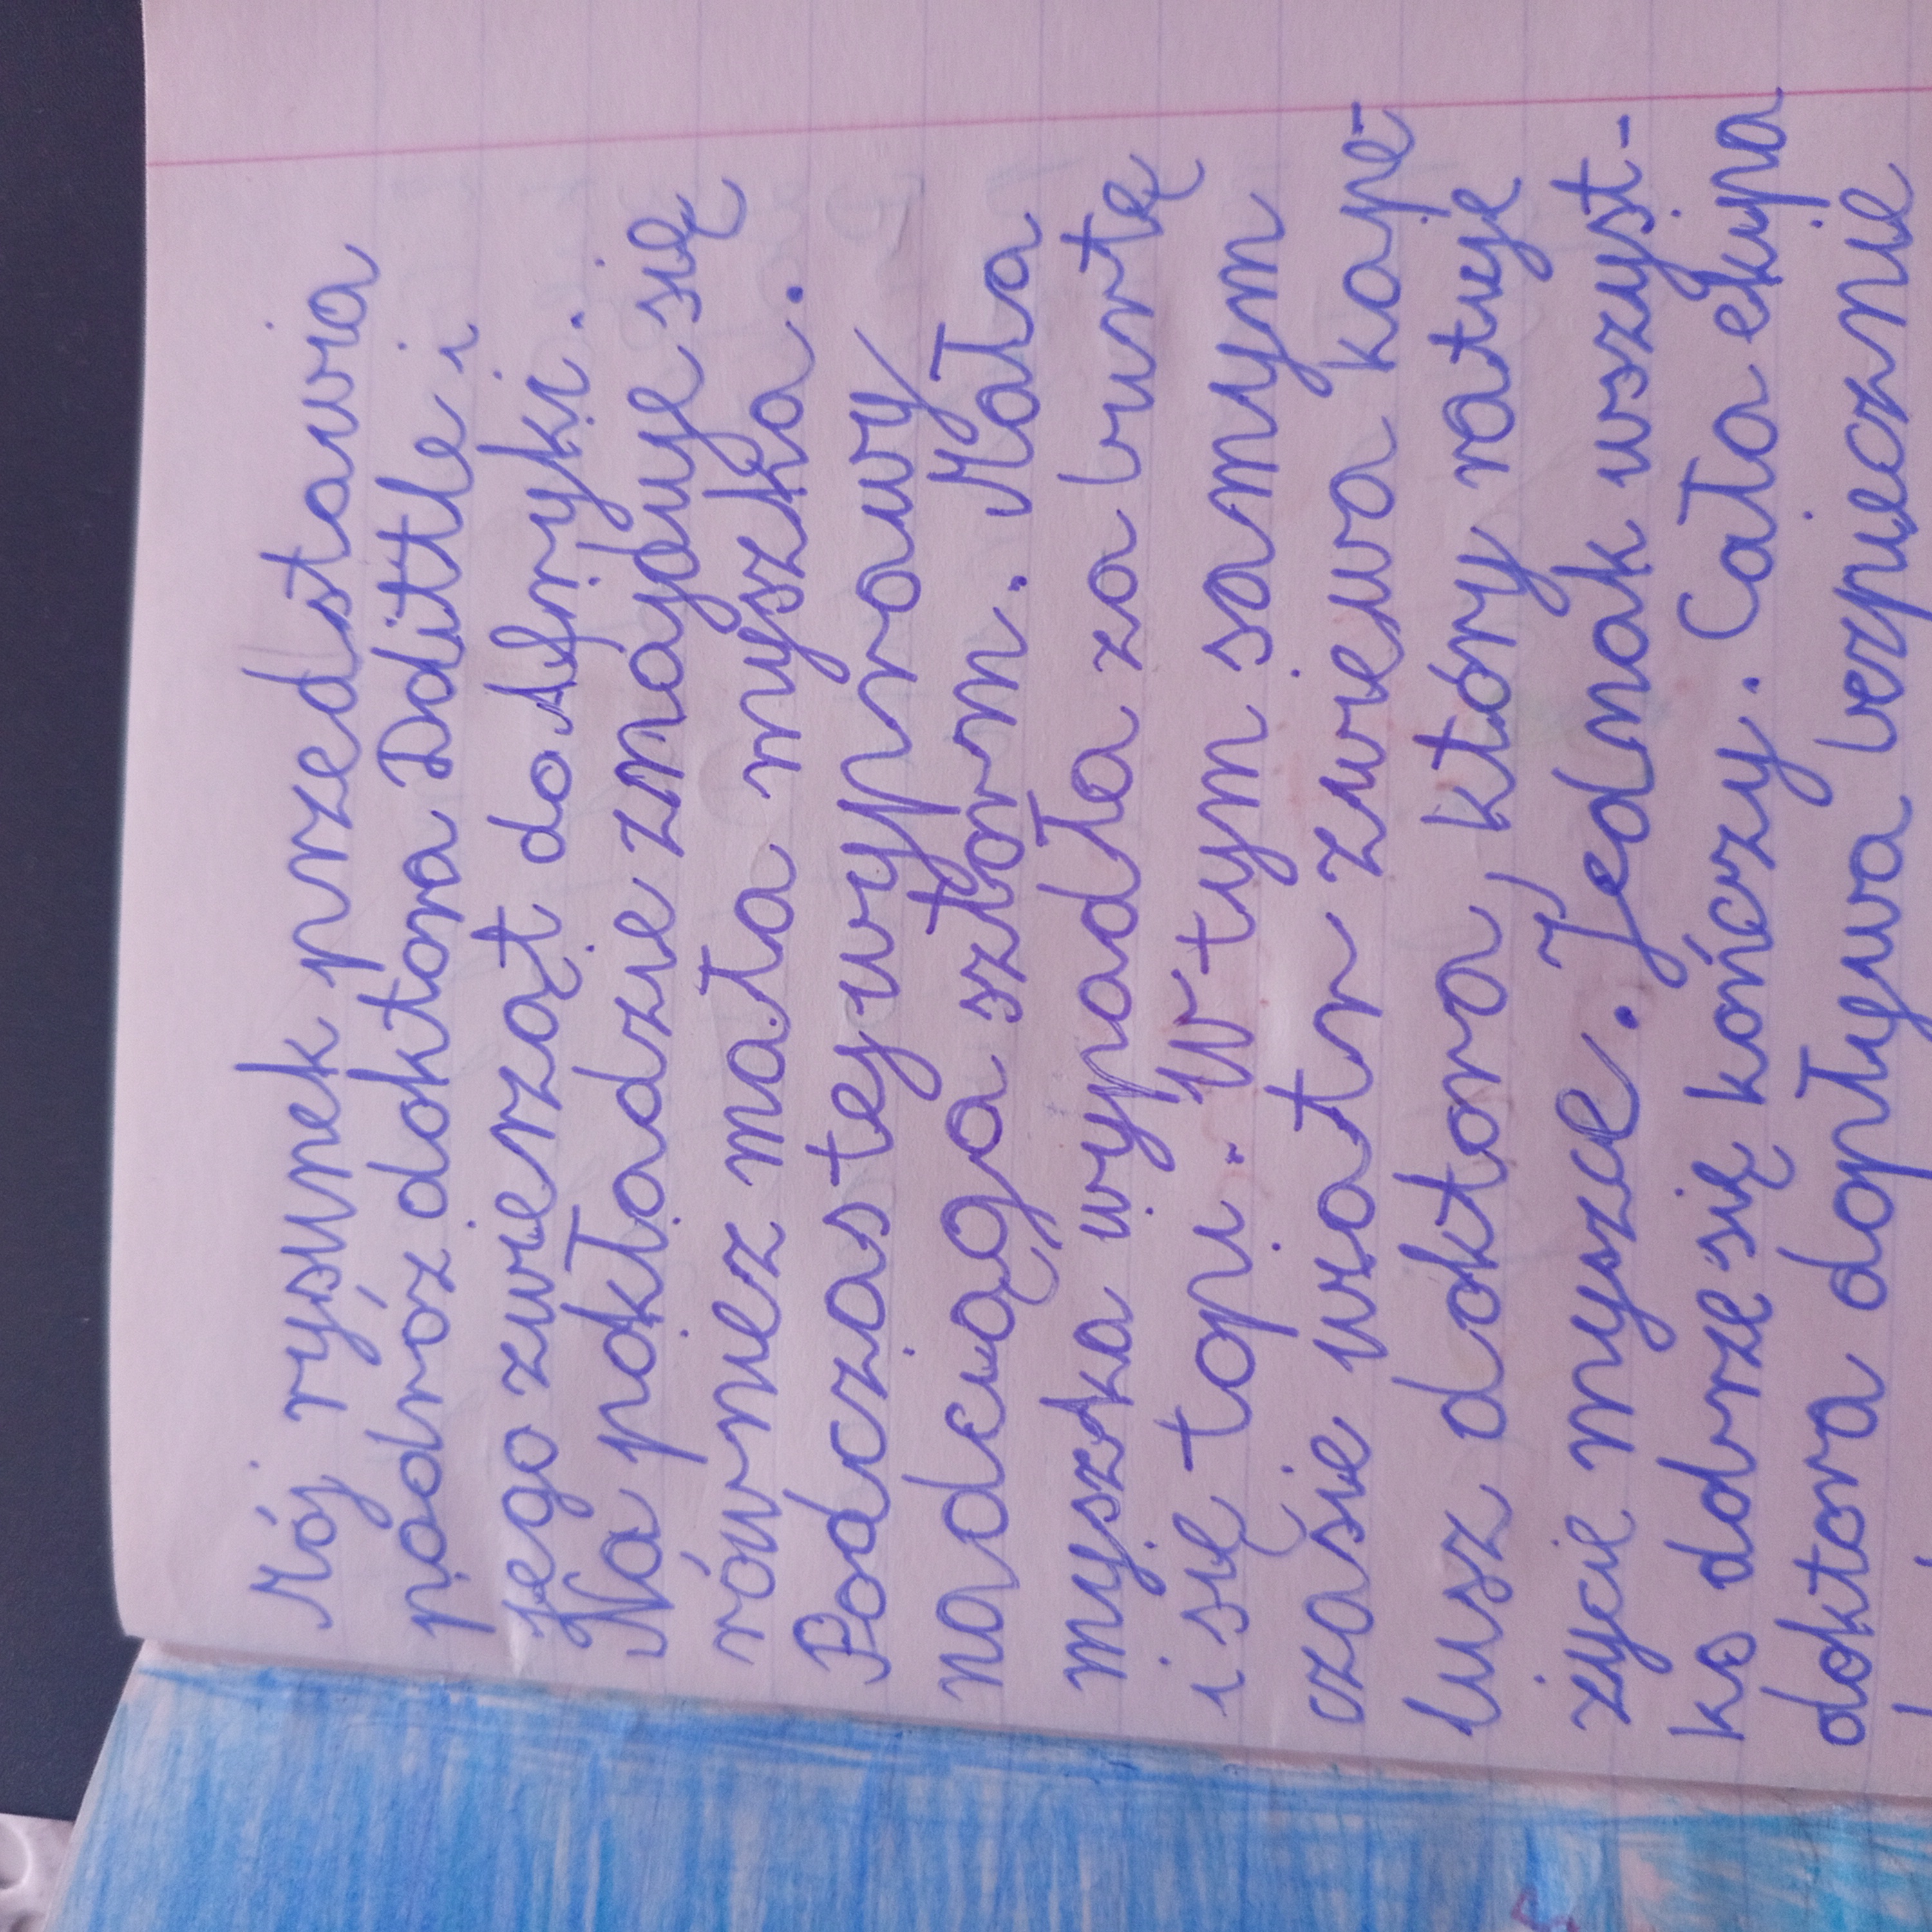 Mój rysunek przedstawia
podróż doktora Dolittle i
jego zwierząt do Afryki.
Na pokładzie znajduje się
równiez mała myszka.
Podczas tej wyprawy
nadciąga sztorm. Mała
myszka wypadła za burtę
i się topi. W tym samym
czasie wiatr zwiewa kape-
lusz doktora, który ratuje
życie myszce. Jednak wszyst-
ko dobrze się kończy. Cała ekipa
doktora dopływa bezpiecznie